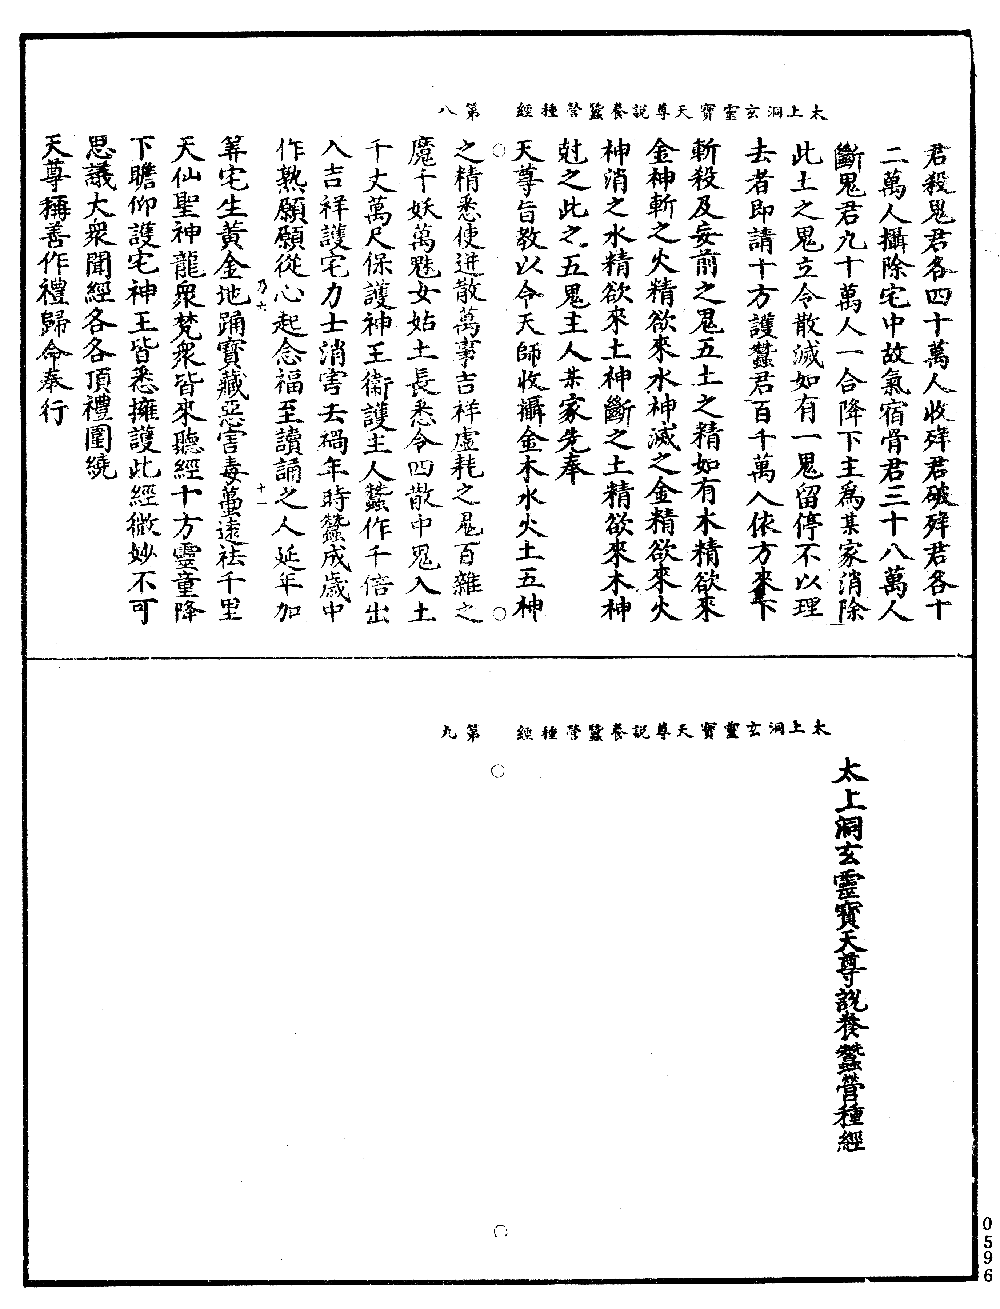 太上洞玄靈寶天尊說養蠶營種經　第八
君殺鬼君各四十萬人收殃君破殃君各十
二萬人攝除宅中故氣宿骨君三十八萬人
斷鬼君九十萬人一合降下主為某家消除
此土之鬼立令散滅如有一鬼留停不以理
去者即請十方護蠶君百千萬人依方來下
斬殺及妄前之鬼五土之精如有木精欲來
金神斬之火精欲來水神滅之金精欲來火
神消之水精欲來土神斷之土精欲來木神
尅之此之五鬼主人某家先奉
天尊旨教以令天師收攝金木水火土五神
之精悉使迸散萬事吉祥虛耗之鬼百雜之
魔千妖萬魅女姑土長悉令四散中鬼入土
千丈萬尺保護神王衞護主人蠶作千倍出
入吉祥護宅力士消害去禍年時蠶成歲中
作熟願願從心起念福至讀誦之人延年加
乃六
十一
筭宅生黃金地踊寶藏惡害毒萬遠祛千里
天仙聖神龍衆梵衆皆來聽經十方靈童降
下瞻仰護宅神王皆悉擁護此經微妙不可
思議大衆聞經各各頂禮圍繞
天尊稱善作禮歸命奉行
太上洞玄靈寶天尊說養蠶營種經　第九
太上洞玄靈寶天尊說養蠶營種經
0596